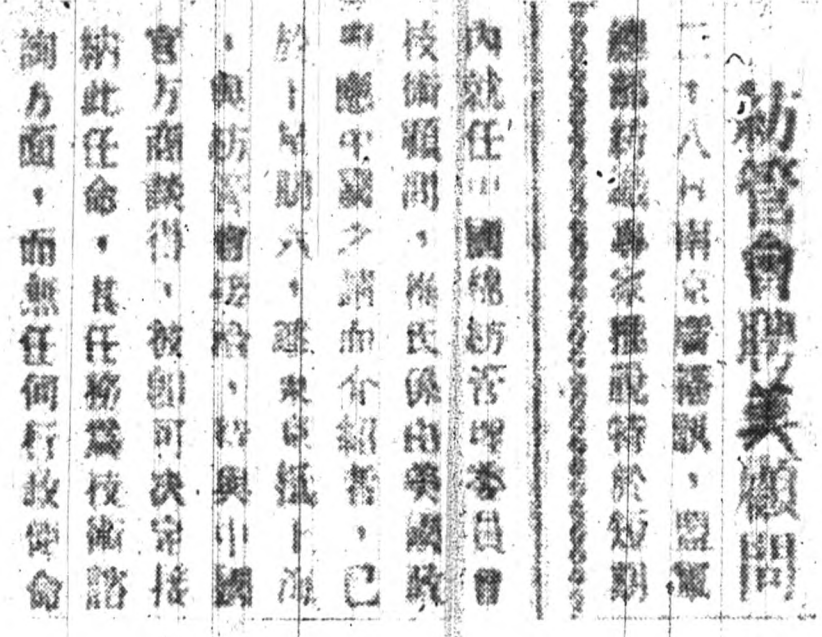 紡管會聘美顧問
二十八日南京廣播訊，盟軍
總部紡織專家特於短期
內就任中國棉紡管理委員會
技術顧問，氏係由美國政
中國之請而介紹者，已
於上星期六，東京抵上海
，與紡管會接洽，與中國
官方商談後，彼即可決定接
納此任命，其任務為技術諮
詢方面，而無任何行政使命